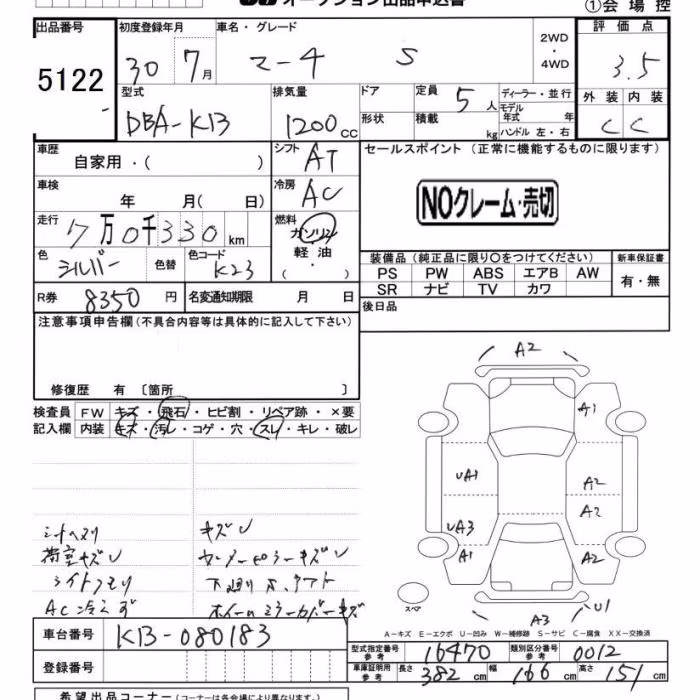 オークション出品申込書
①会場控
出品番号 初度登録年月 車名・グレード 2WD ・ 4WD 評価点
5122 30 7月 マーチ S 3.5
型式 排気量 ドア 定員 5人 ディーラー・並行 外装 内装
DBA-K13 1200cc 形状 積載 kg モデル年式 年 ハンドル 左・右 C C
車歴 自家用・( ) シフト AT セールスポイント(正常に機能するものに限ります)
車検 年 月( 日) 冷房 AC NOクレーム・売切
走行 7万0千330km 燃料 ガソリン 軽油 ( ・ )
色 シルバー 色替 色コード K23
装備品(純正品に限り○をつけてください) 新車保証書
PS PW ABS エアB AW 有・無
SR ナビ TV カワ
R券 8350円 名変通知期限 月 日 後日品
注意事項申告欄(不具合内容等は具体的に記入して下さい)
修復歴 有 〔箇所 〕
検査員記入欄 FW キズ・飛石・ヒビ割・リペア跡・×要
内装 キズ・汚レ・コゲ・穴・スレ・キレ・破レ
A2
A1
UA1 A2
A2
UA3
A1 A2
スペア
A3 U1
シートヘタリ キズU
荷室キズU センターピラーキズU
ライトクモリ 下廻りサ、
AC冷えず ホイールミラーカバーキズ
A-キズ E-エクボ U-凹み W-補修跡 S-サビ C-腐食 XX-交換済
車台番号 K13-080183
型式指定番号 参考 16470 類別区分番号 参考 0012
登録番号
車庫証明用 参考 長さ 382cm 幅 166cm 高さ 151cm
希望出品コーナー(コーナーは各会場により異なります)